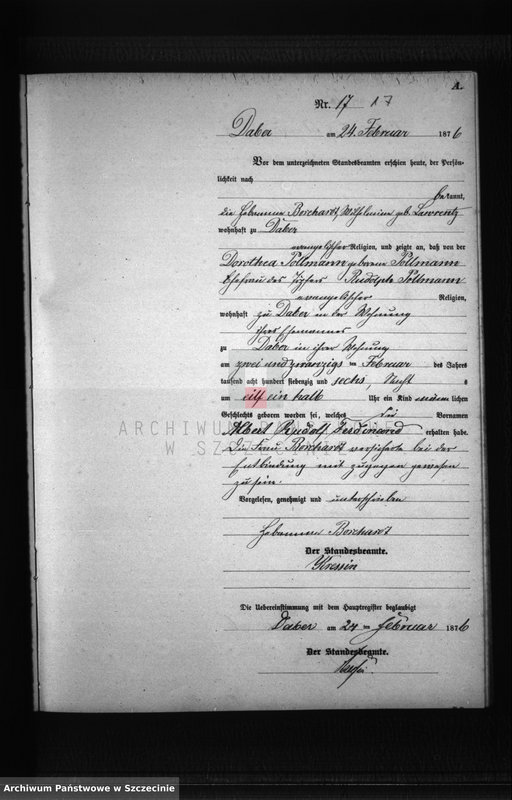 A.
Nr. 17 17
Daber am 24. Februar 1876
Vor dem unterzeichneten Standesbeamten erschien heute, der Persön-
lichkeit nach
bekannt,
die Hebamme Borchardt, Wilhelmine geb. Lawrentz
wohnhaft zu Daber
evangelischer Religion, und zeigte an, daß von der
Dorothea Pollmann geborene Pollmann
Ehefrau des Töpfers Rudolph Pollmann
evangelischer Religion,
wohnhaft zu Daber in der Wohnung
ihres Ehemannes
zu Daber in ihrer Wohnung
am zwei und zwanzigs ten Februar des Jahres
tausend acht hundert siebenzig und sechs, Nachts
um elf ein halb Uhr ein Kind männlichen
Geschlechts geboren worden sei, welches die Vornamen
Albert Rudolf Ferdinand erhalten habe.
Die Frau Borchardt versicherte bei der
Entbindung mit zugegen gewesen
zu sein.
Vorgelesen, genehmigt und unterschrieben
Hebamme Borchardt
Der Standesbeamte.
Kressin
Die Uebereinstimmung mit dem Hauptregister beglaubigt
Daber am 24 ten Februar 1876
Der Standesbeamte.
ARCHIWUM
W SZCZECINIE
Archiwum Państwowe w Szczecinie